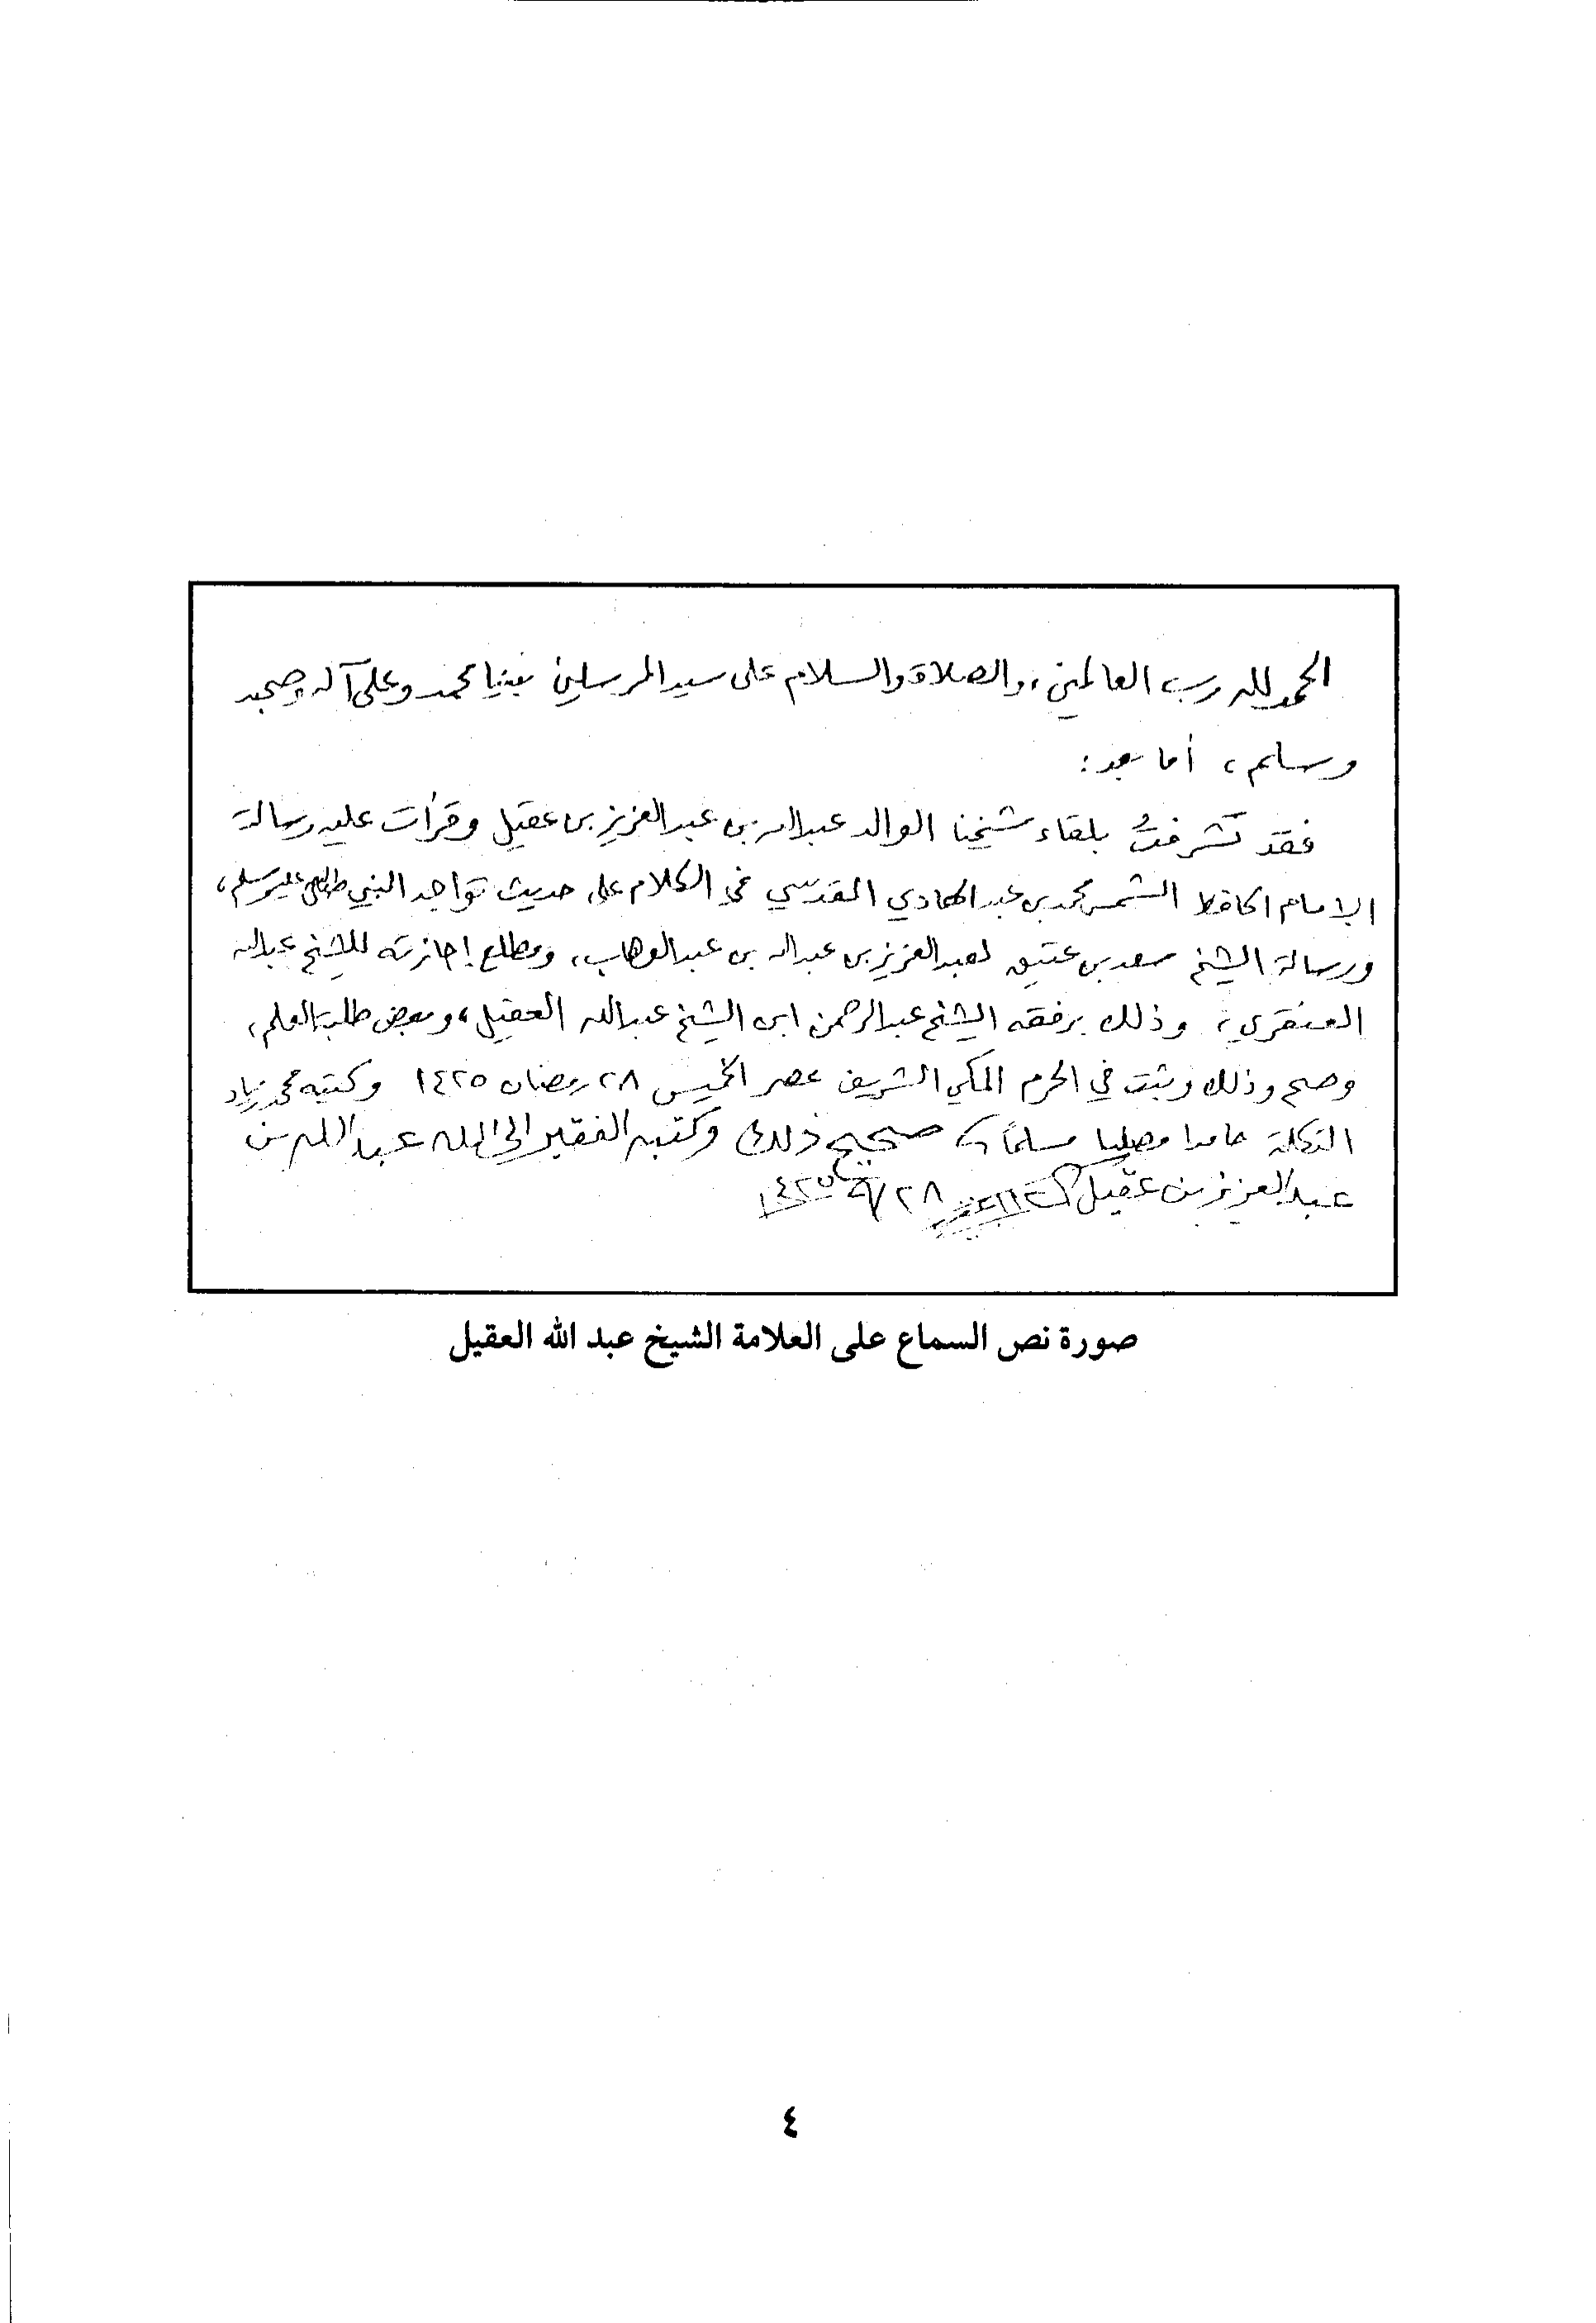 الحمد لله رب العالمين، والصلاة والسلام على سيد المرسلين نبينا محمد وعلى آله وصحبه
وسلم، أما بعد:
فقد تشرفتُ بلقاء شيخنا الوالد عبدالله بن عبدالعزيز بن عقيل وقرأت عليه رسالة
الإمام الحافظ الشمس محمد بن عبد الهادي المقدسي في الكلام على حديث تواجد النبي صلى الله عليه وسلم،
ورسالة الشيخ سعد بن عتيق لعبدالعزيز بن عبدالله بن عبدالوهاب، ومطلع إجازته للشيخ عبدالله
العنقري، وذلك برفقه الشيخ عبدالرحمن ابن الشيخ عبدالله العقيل، وبعض طلبة العلم،
وصح وذلك وثبت في الحرم المكي الشريف عصر الخميس ٢٨ رمضان ١٤٢٥ وكتبه محمد زياد
التكلة حامدا مصليا مسلماً صحيح ذلك وكتبه الفقير إلى الله عبد الله بن
عبد العزيز بن عقيل ٢٨/٩/١٤٢٥
صورة نص السماع على العلامة الشيخ عبد الله العقيل
٤